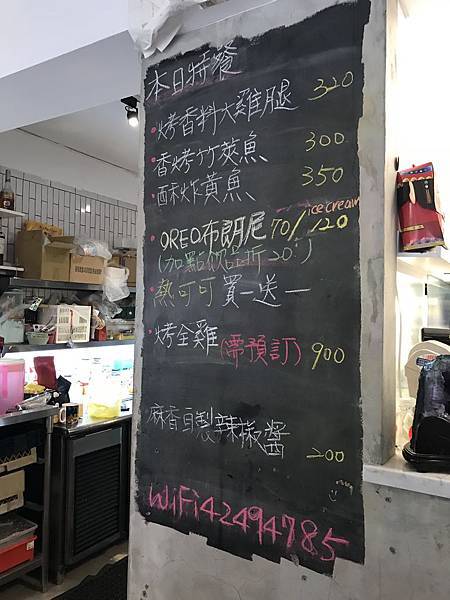 本日特餐
·烤香料大雞腿 320
·香烤竹筴魚 300
·酥炸黃魚 350
ice cream
·OREO布朗尼 70/120
(加點飲品折20.)
·熱可可買一送一
·烤全雞(需預訂) 900
麻香自製辣椒醬 200
WiFi42494785